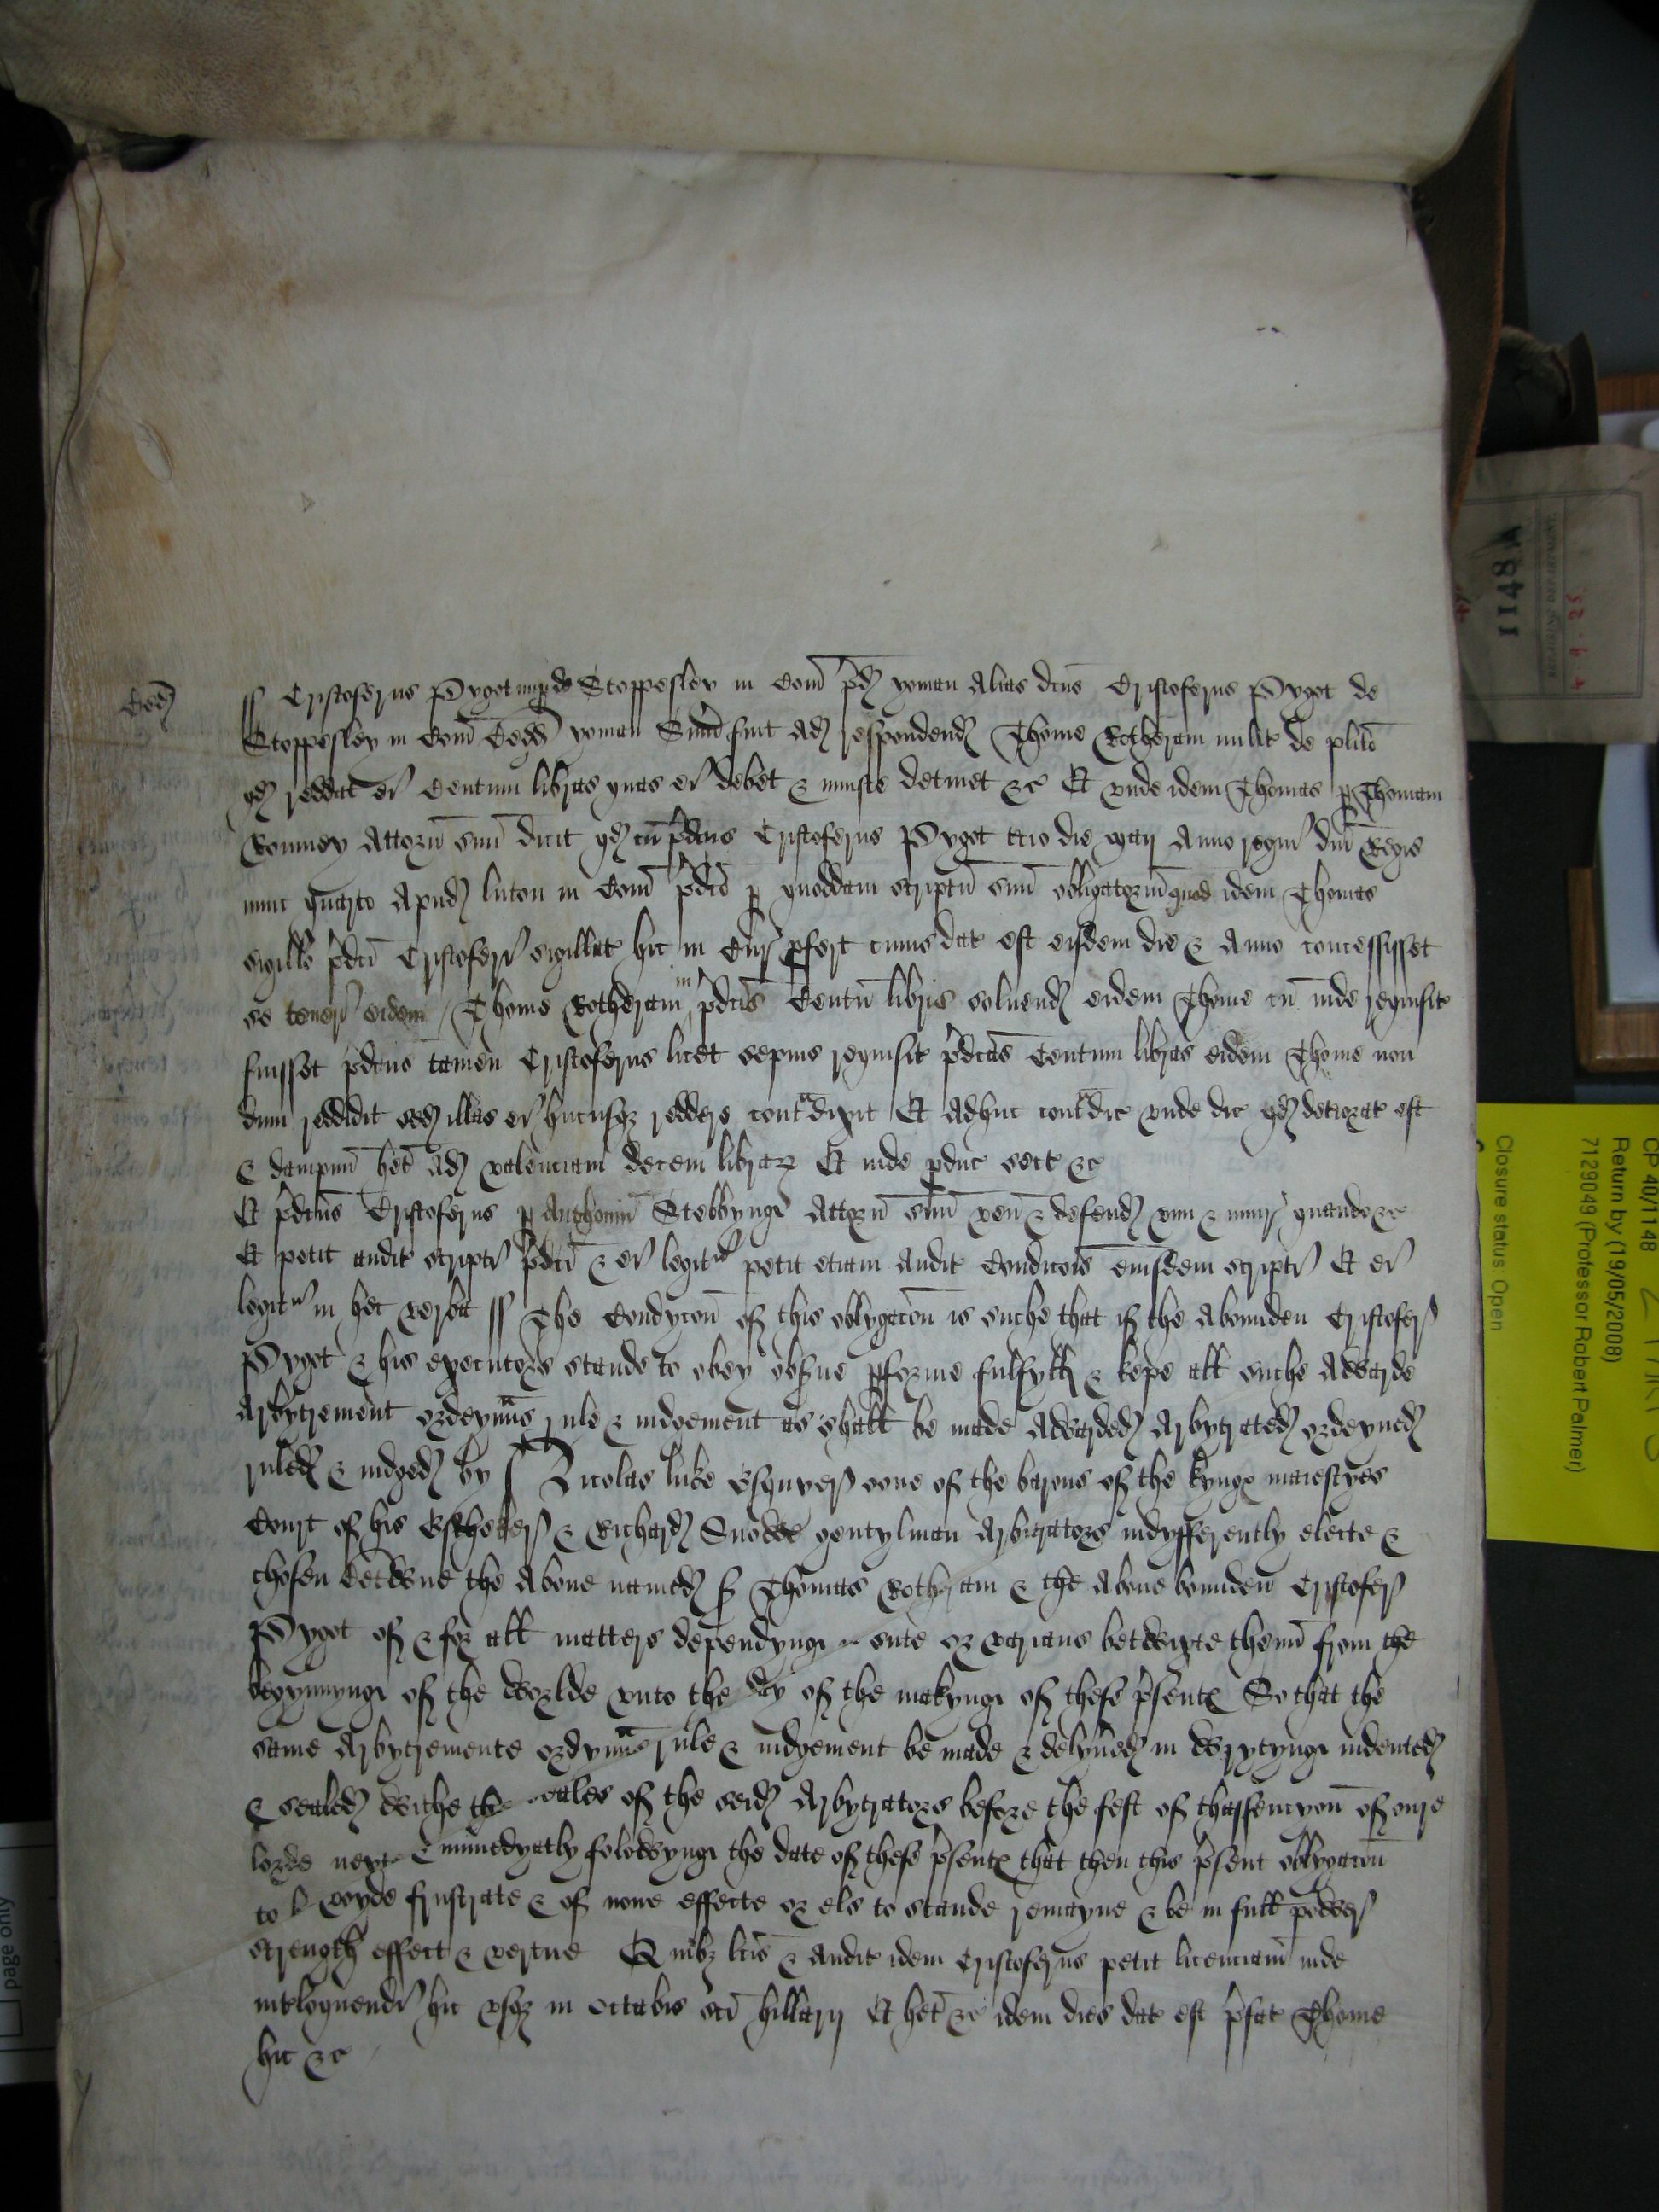 Bed
ss Cristoferus Pygot nup de Stoppesley in Com pd yoman Alias dcus Cristoferus Pygot de
Stoppesley in Com Bedd yoman Sum fuit Ad respondend Thome Rotheram milit de plito
qd reddat ei Centum libras quas ei debet & iniuste detinet &c Et unde idem Thomas p Thomam
Rowney Attorn suu dicit qd cu pdcus Cristoferus Pygot tcio die Maii Anno regni dni Regis
nunc quarto Apud luton in Com pdco p quoddam scriptu suu obligatoriu quod idem Thomas
sigillo pdci Cristoferi sigillat hic in Cur pfert cuius dat est eisdem die & Anno concessisset
se teneri eidem Thome Rotheram in pdcis Centu libris soluend eidem Thome cu inde requisit
fuisset pdcus tamen Cristoferus licet sepius requisit pdcas Centum libras eidem Thome non
dum reddidit sed illas ei hucusqz reddere contadixit Et Adhuc contadic unde dic qd deteriorat est
& dampnu het Ad valenciam decem librarz Et inde pduc sect &c
Et pdcus Cristoferus p Anthoniu Stebbyng Attorn suu ven & defend vim & iniur quando &c
Et petit audit scripti pdci & ei legitur petit etiam Audit Condicois eiusdem scripti Et ei
legitur in hec verba ss The Condycon of this oblygacon is suche that if the Abounden Cristofer
Pygot & his executors stande to obey obsue pforme fulfyll & kepe all suche Awarde
Arbytrement ordeynns rule & iudgement as shall be made Awarded Arbytrated ordeyned
ruled & iudged by Nicolas luke Esquyer oone of the barons of the kynge maiestyes
Court of his Eschoker & Richard Snowe gentylman Arbitrators indyfferently electe &
chosen betwene the Aboue named S Thomas Rotheram & the Aboue bounden Cristofer
Pygot of & for all matters dependyng in sute or varians betwixte them from the
begynnyng of the worlde vnto the day of the makyng of these psente So that the
same Arbytremente ordynns rule & iudgement be made & delyued in wrytyng indented
& sealed withe the seales of the seid Arbytrators before the fest of thassencyon of oure
lorde next immedyatly folowyng the date of these psente that then this psent oblygacon
to be voyde frustrate & of none effecte or els to stande remayne & be in full power
strength effect & vertue Quibz lcis & audit idem Cristoferus petit licenciam inde
intloquendi hic vsqz in Octabis sci hillarij Et het &c idem dies dat est pfat Thome
hic &c
1148A
4. 9. 25
CP 40/1148
Return by (19/05/2008)
7129049 (Professor Robert Palmer)
Closure status: Open
page only